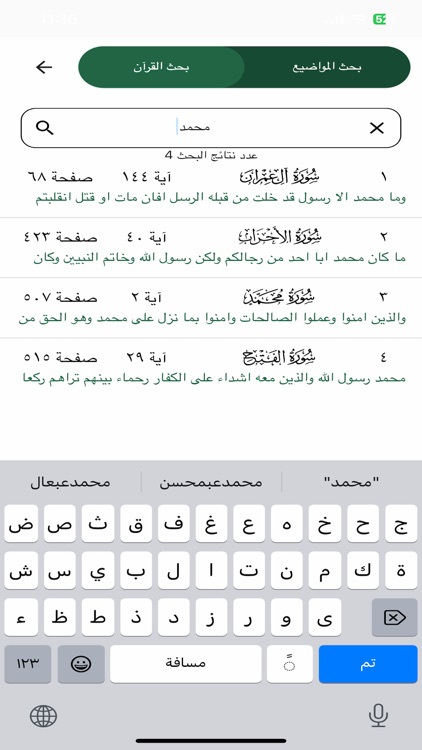 بحث المواضيع
بحث القرآن
محمد
عدد نتائج البحث 4
١ سُورَةُ آلِ عِمْرَانَ آية ١٤٤ صفحة ٦٨
وما محمد الا رسول قد خلت من قبله الرسل افان مات او قتل انقلبتم
٢ سُورَةُ الأَحْزَابِ آية ٤٠ صفحة ٤٢٣
ما كان محمد ابا احد من رجالكم ولكن رسول الله وخاتم النبيين وكان
٣ سُورَةُ مُحَمَّدٍ آية ٢ صفحة ٥٠٧
والذين امنوا وعملوا الصالحات وامنوا بما نزل على محمد وهو الحق من
٤ سُورَةُ الفَتْحِ آية ٢٩ صفحة ٥١٥
محمد رسول الله والذين معه اشداء على الكفار رحماء بينهم تراهم ركعا
"محمد" محمدعبمحسن محمدعبعال
ج ح خ ه ع غ ف ق ث ص ض
ة ك م ن ت ا ل ب ي س ش
ى و ر ز د ذ ط ظ ء
تم مسافة ١٢٣